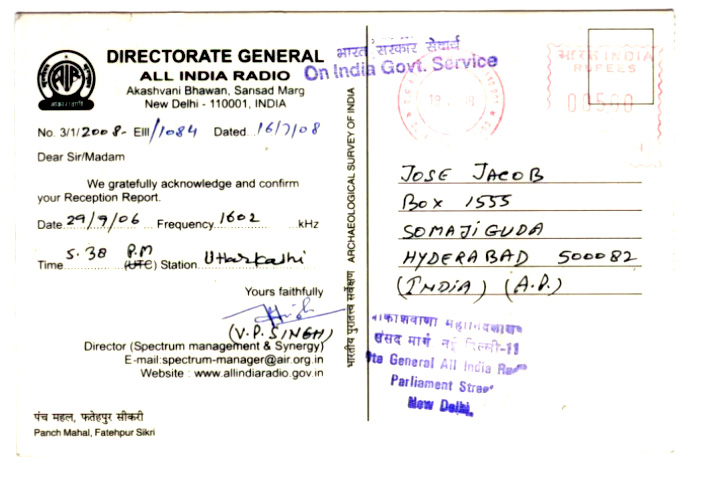 DIRECTORATE GENERAL
ALL INDIA RADIO
Akashvani Bhawan, Sansad Marg
New Delhi - 110001, INDIA
No. 3/1/2008- EIII/1084 Dated...16/7/08
Dear Sir/Madam
We gratefully acknowledge and confirm
your Reception Report.
Date.29/9/06... Frequency.1602...kHz
Time 5.38 P.M (UTC) Station..Uttarkashi
Yours faithfully
(V.P. SINGH)
Director (Spectrum management & Synergy)
E-mail:spectrum-manager@air.org.in
Website : www.allindiaradio.gov.in
पंच महल, फतेहपुर सीकरी
Panch Mahal, Fatehpur Sikri
भारतीय पुरातत्व सर्वेक्षण ARCHAEOLOGICAL SURVEY OF INDIA
भारत सरकार सेवार्थ
On India Govt. Service
भारत INDIA
RUPEES
00500
JOSE JACOB
Box 1555
SOMAJIGUDA
HYDERABAD 500082
(INDIA) (A.P.)
संसद मार्ग नई दिल्ली-11
General All India
Parliament Street
New Delhi.
AIR